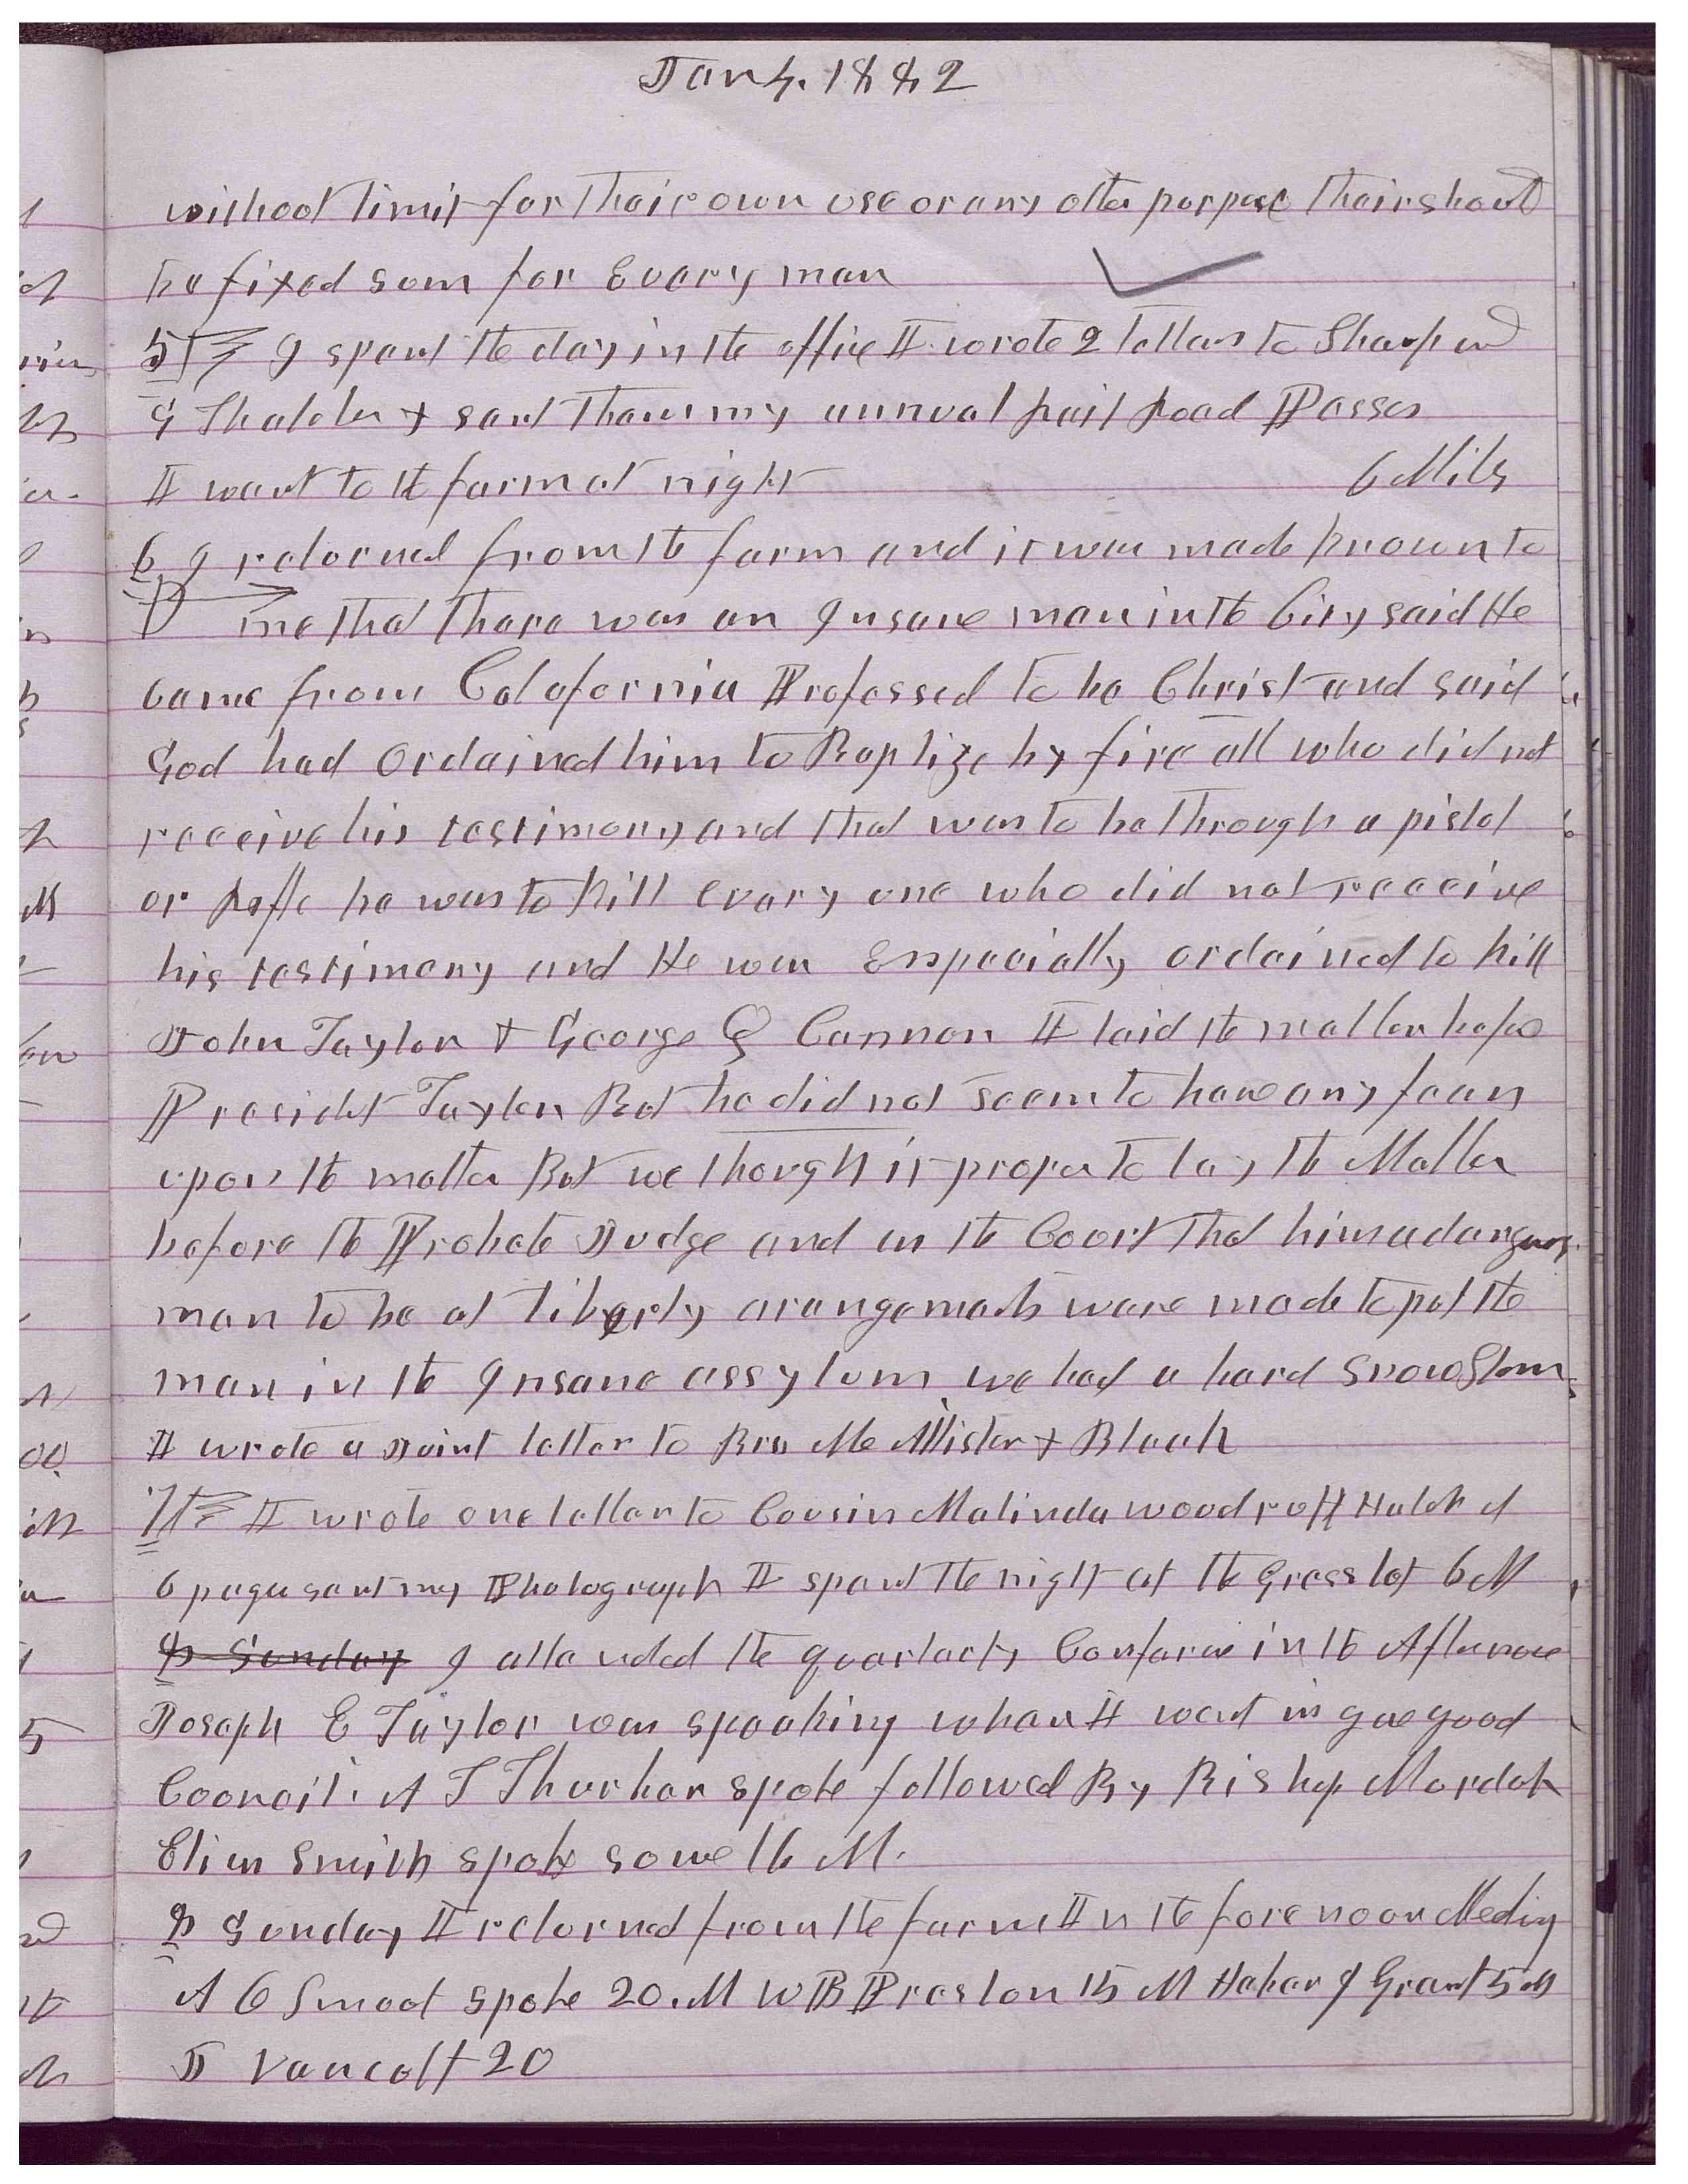 Jan 4. 1882
without limit for thair own use or any other purpose thair should
be fixed sum for Evary man
5th I spent the day in the office I wrote 2 letters to Sharp and
G Thatcher & sent tham my annual Rail Road Passes
I went to the farm at night 6 Mils
6 I returned from the farm and it was made known to
me that thare was an Insane man in the City said He
came from Calafornia Professed to be Christ and said
God had ordained him to Baptize by fire all who did not
receive his testimony and that was to be through a pistol
or he was to kill evary one who did not receive
his testimony and He was Esspecially ordained to kill
John Taylor & George Q Cannon I laid the matter before
Presidet Taylor But he did not seem to have any fears
upon the matter But we thought it proper to lay the Matter
before the Probate Judge and as the Court thot him a dangerous
man to be at liberty arangements ware made to put the
man in the Insane assylum we had a hard Snow Storm
I wrote a Joint letter to Bro Mc Allister & Bleak
7th I wrote one letter to Cousin Malinda woodruff Hatch of
6 pages sent my Photograph I spent the night at the Grass lot 6 M
8 Sunday I attended the quarterly Conferce in the Afternoon
Joseph E Taylor was speaking when I went in gave good
Council. A T Thurber spoke followed By Bishop Mordok
Elias Smith spoke some 16 M.
8 Sunday I returned from the farm In the forenoon Meeting
A O Smoot spoke 20. M W B Preston 15 M Heber J Grant 5 M
J Vancott 20